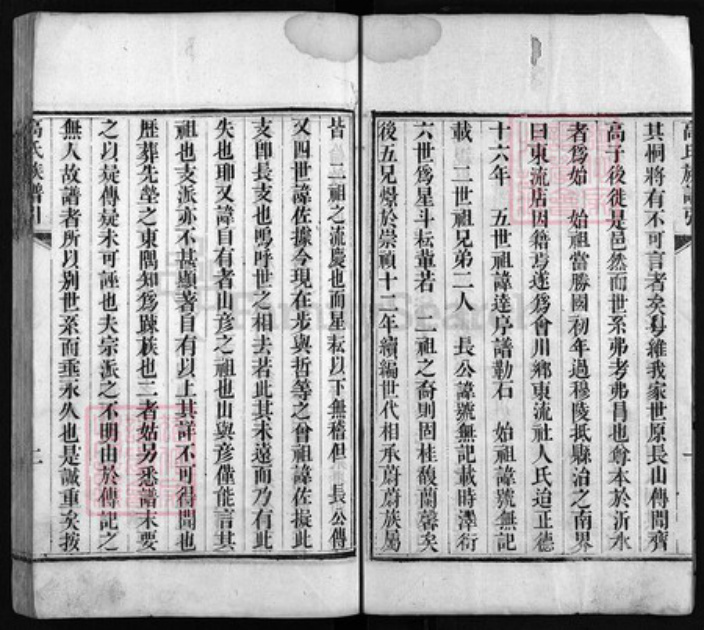 其桐將有不可言者矣粤維我家世原長山傳聞齊
高子後徙是邑然而世系弗考弗昌也會本於沂水
者爲始　始祖當勝國初年過穆陵抵縣治之南界
曰東流店因籍焉遂爲會川鄉東流社人氏迨正德
十六年　五世祖諱達序譜勒石　始祖諱號無記
載　二世祖兄弟二人　長公諱號無記載時澤衍
六世爲星斗耘軰若　二祖之裔則固桂馥蘭馨矣
後五兄燝於崇禎十二年續編世代相承蔚蔚族屬
皆　二祖之流慶也而星耘以下無稽但　長公傳
又四世諱佐據今現在步與哲等之曾祖諱佐擬此
支卽長支也嗚呼世之相去若此其未遠而乃有此
失也聊又諱自有者山彦之祖也山與彦僅能言其
祖也支派亦不甚顯著自有以上其詳不可得聞也
歷葬先塋之東隅知爲踈族也二者姑另悉譜末要
之以疑傳疑未可誣也夫宗派之不明由於傳記之
無人故譜者所以別世系而垂永久也是誠重矣按
高氏族譜引
二